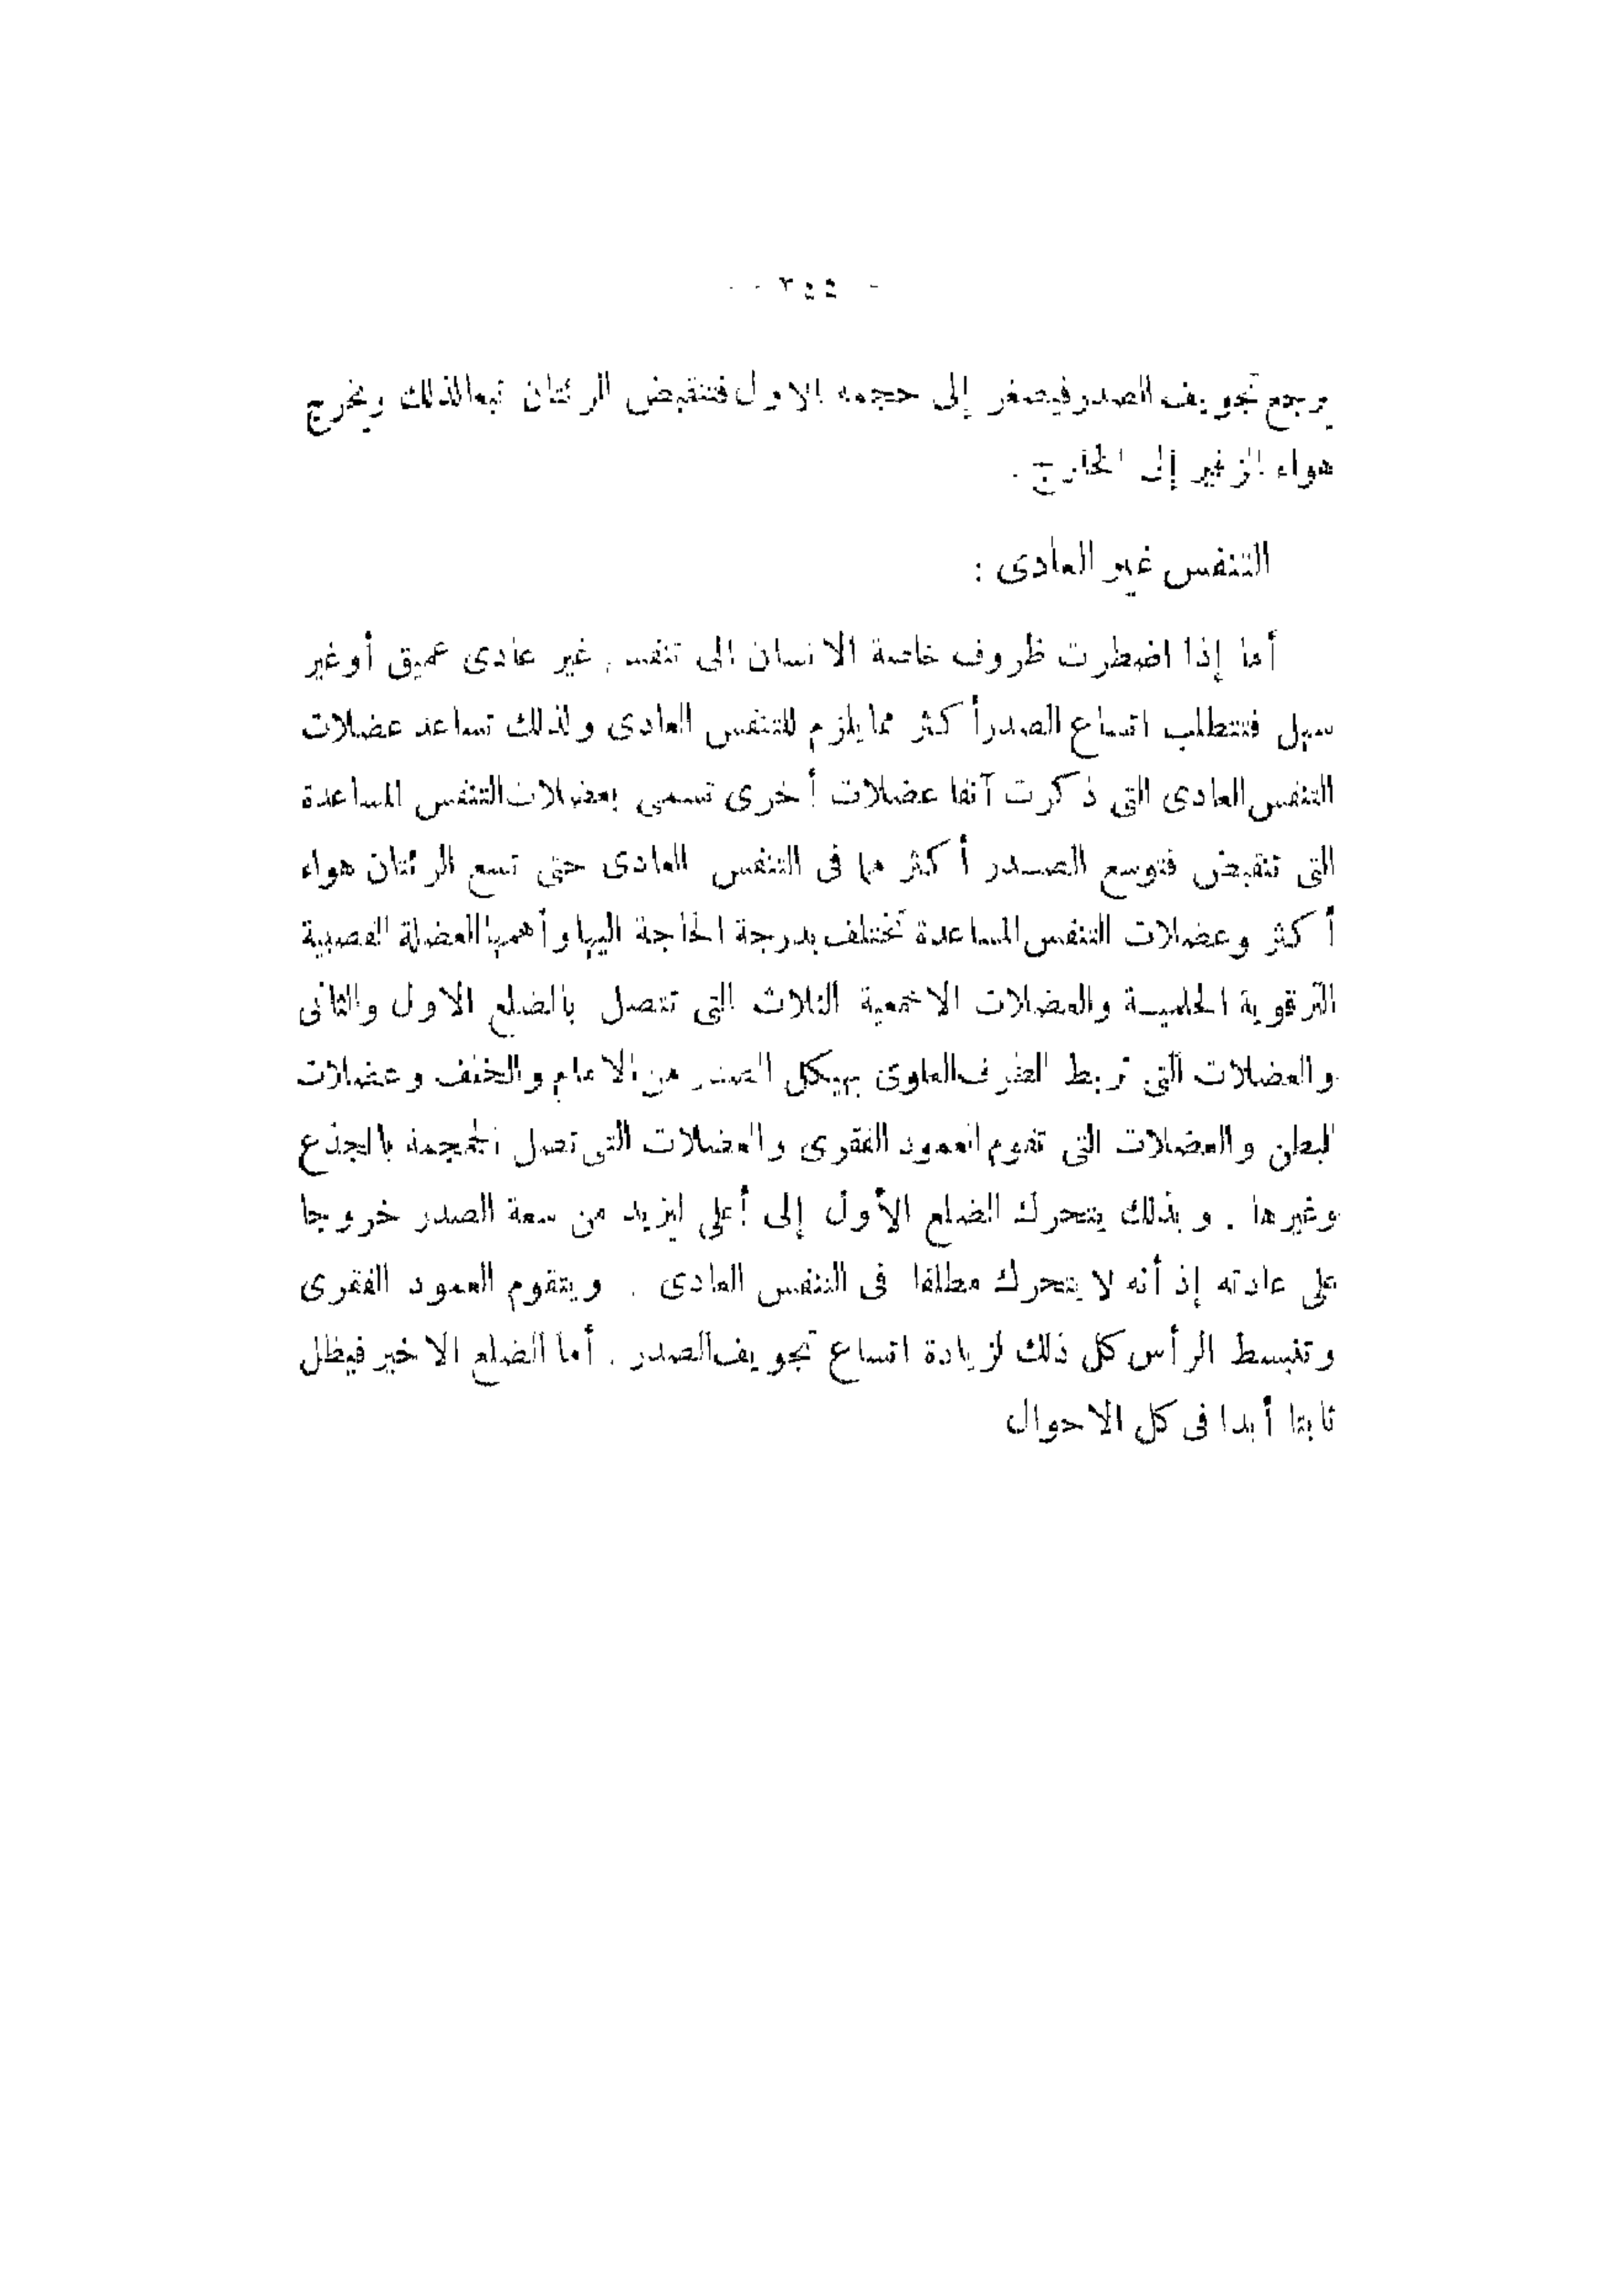 - ٢٥٥ -
يرجع تجويف الصدر فيصغر إلى حجمه الاول فتنقبض الرئتان تبعا لذلك ويخرج
هواء الزفير إلى الخارج .
التنفس غير العادى :
أما إذا اضطرت ظروف خاصة الانسان الى تنفس غير عادى عميق أو غير
سهل فتتطلب اتساع الصدر أكثر مما يلزم للتنفس العادى ولذلك تساعد عضلات
التنفس العادى التى ذكرت آنفا عضلات أخرى تسمى بعضلات التنفس المساعدة
التى تنقبض فتوسع الصدر أكثر مما فى التنفس العادى حتى تسع الرئتان هواء
أكثر وعضلات التنفس المساعدة تختلف بدرجة الحاجة اليها وأهمها العضلة القصبية
الترقوية الحلمية والعضلات الاخمعية الثلاث التى تتصل بالضلع الاول والثانى
والعضلات التى تربط الطرف العلوى بهيكل الصدر من الامام والخلف وعضلات
البطن والعضلات التى تقوم العمود الفقرى والعضلات التى تصل الجمجمة بالجذع
وغيرها . وبذلك يتحرك الضلع الأول إلى أعلى ليزيد من سعة الصدر خروجا
على عادته إذ أنه لا يتحرك مطلقا فى التنفس العادى . ويتقوم العمود الفقرى
وتنبسط الرأس كل ذلك لزيادة اتساع تجويف الصدر . أما الضلع الاخير فيظل
ثابتا أبدا فى كل الاحوال